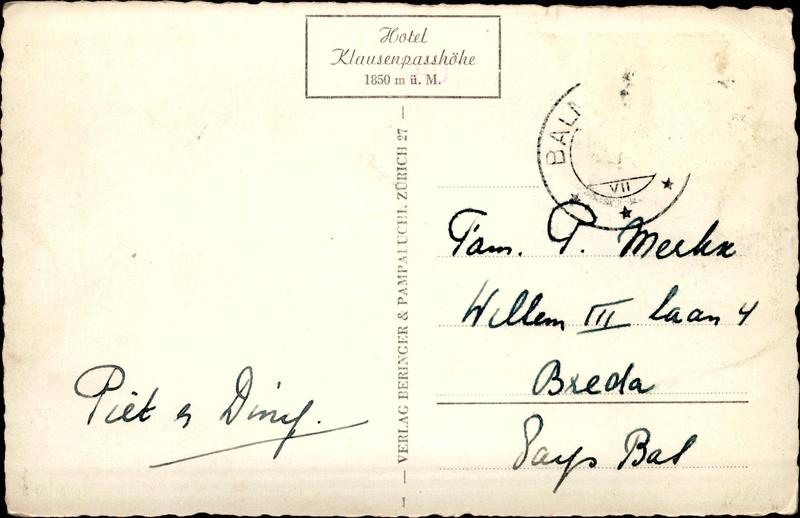 Hotel
Klausenpasshöhe
1850 m ü. M.
VERLAG BERINGER & PAMPALUCHI. ZÜRICH 27
BAL
VII
Fam. P. Merkx
Willem III laan 4
Breda
Pays Bas
Piet en Diny.